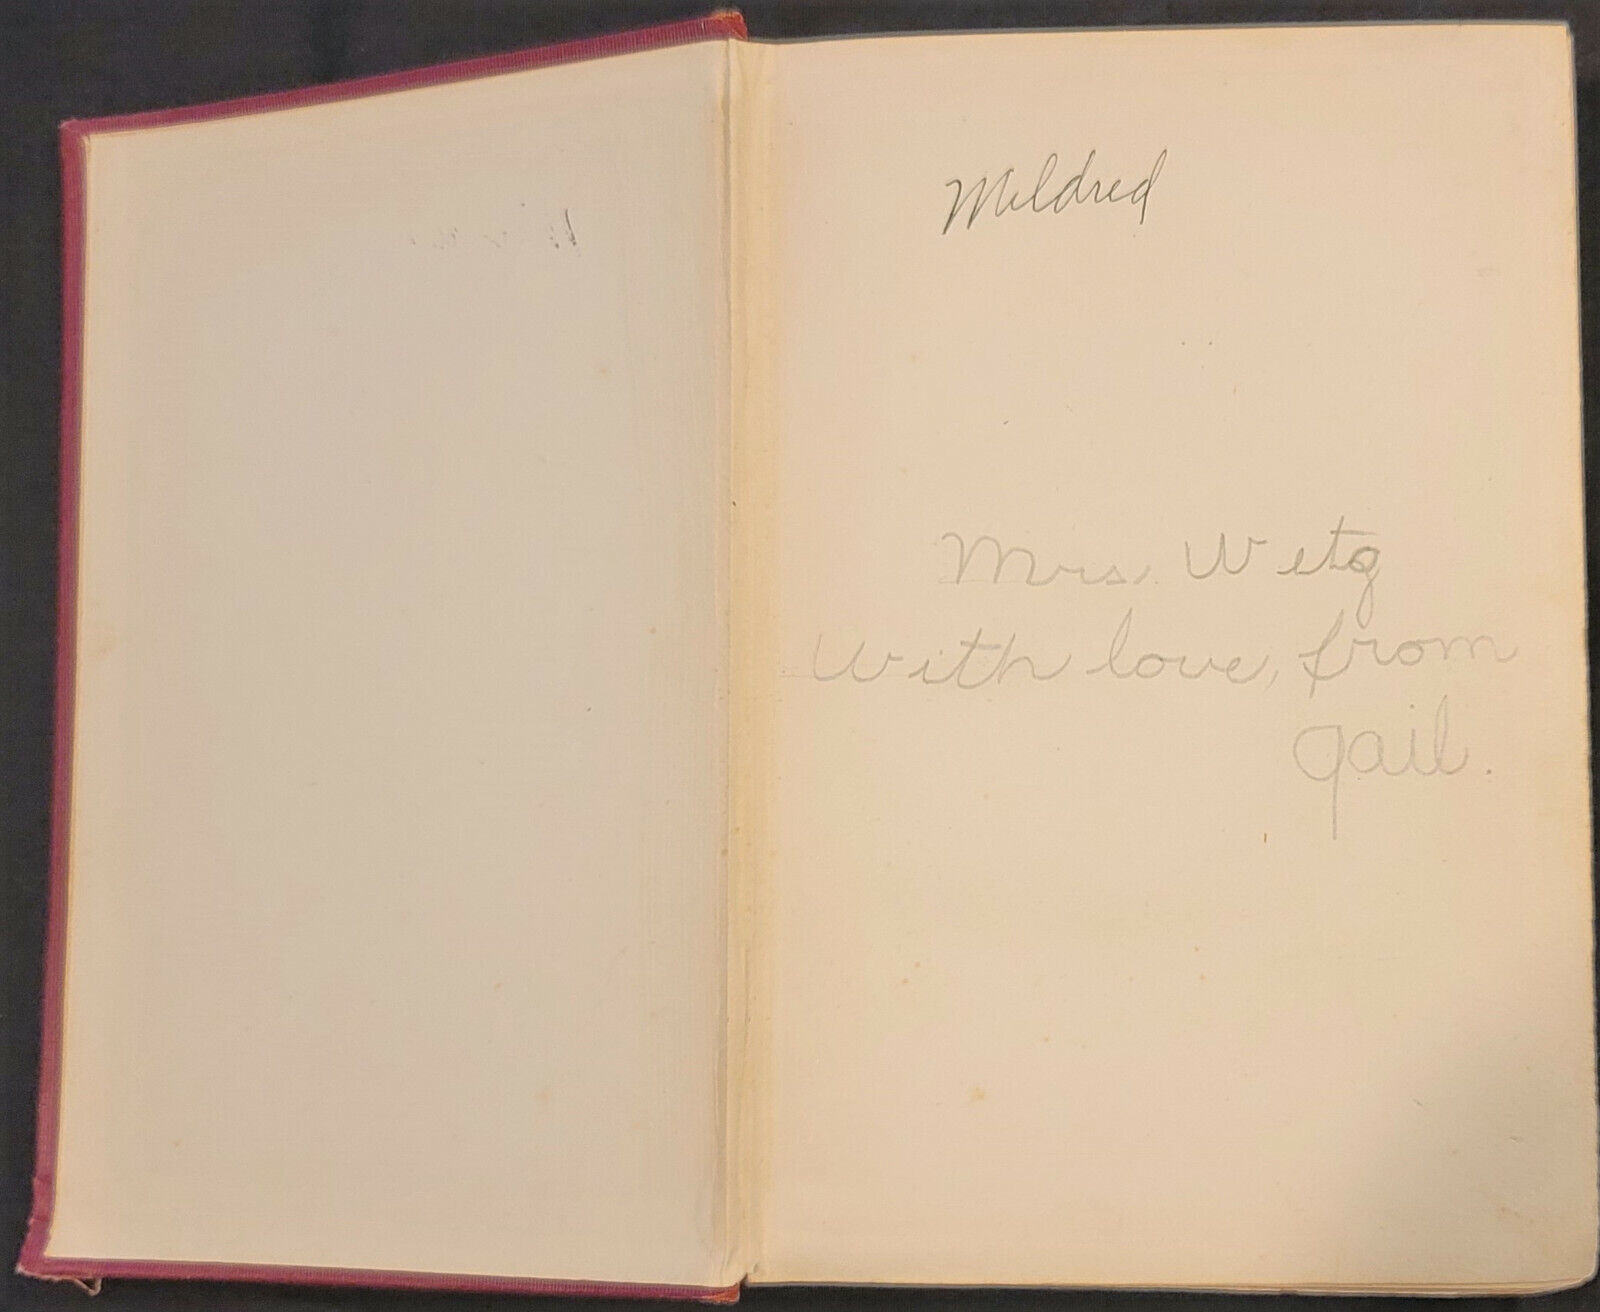 Mildred
Mrs. Wetz
With love, from
Gail.